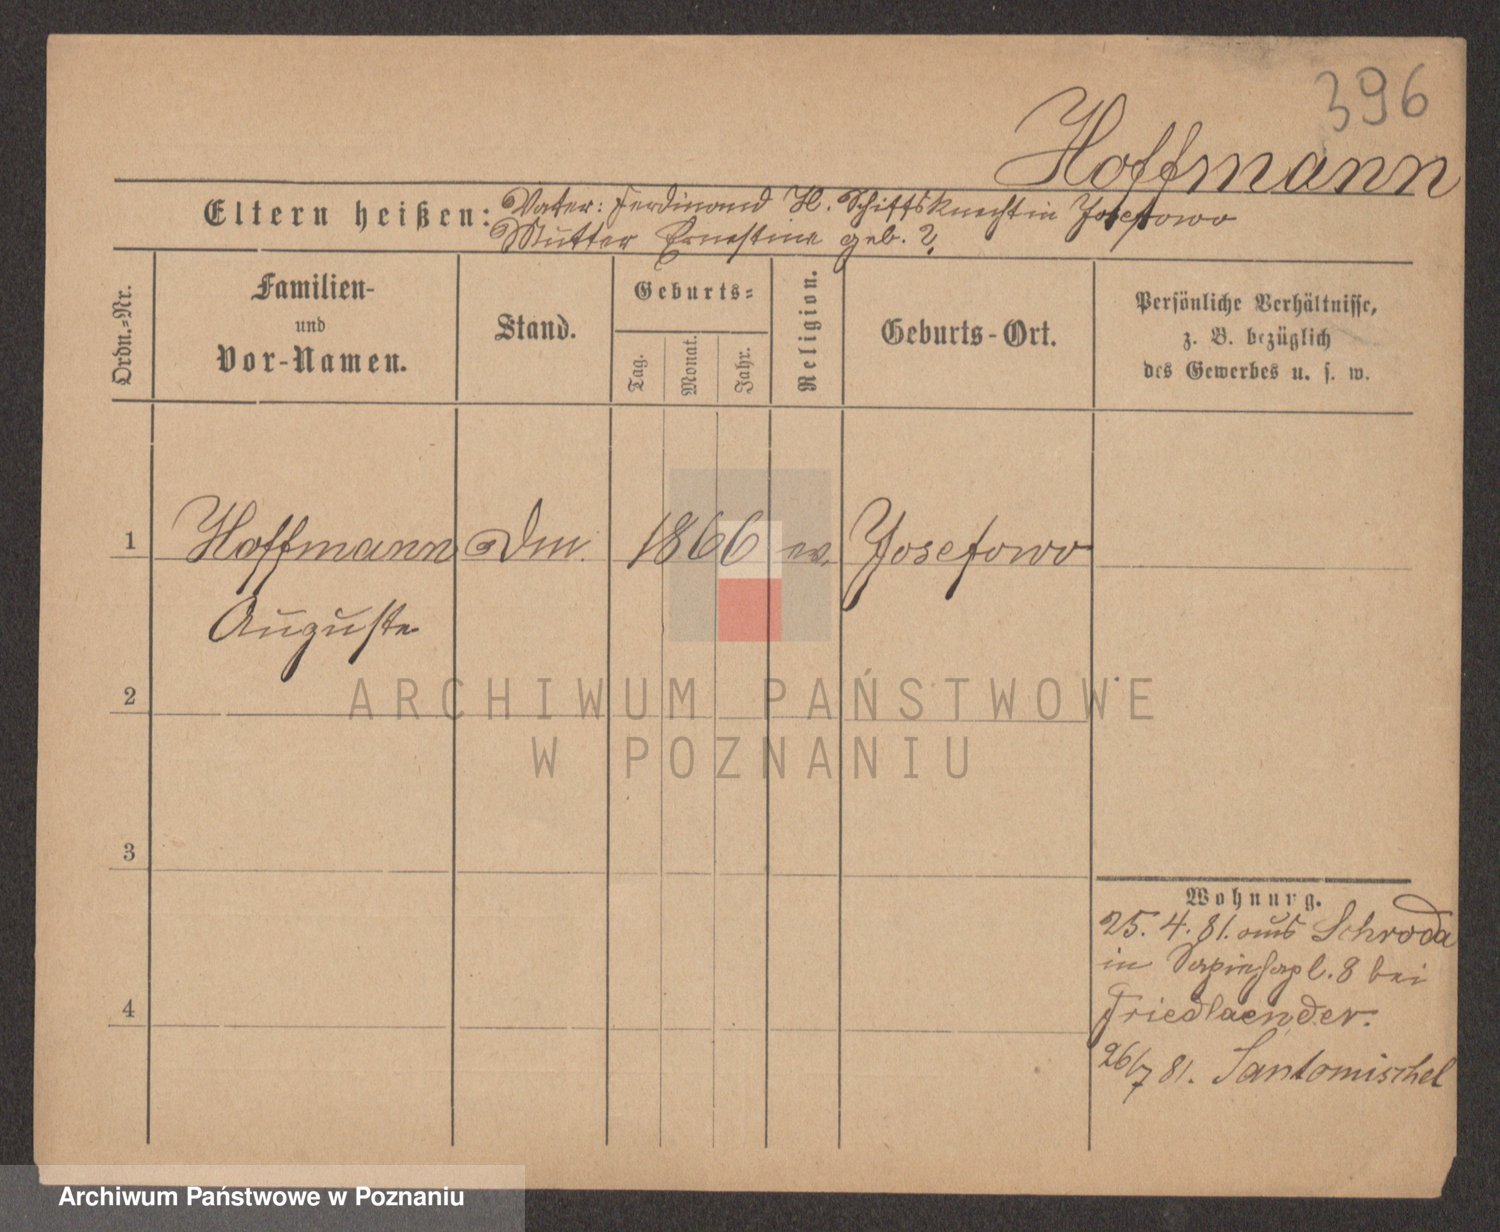 396
Hoffmann
Eltern heißen: Vater: Ferdinand H. Schiffsknecht in Josefowo
Mutter Ernestine geb. ?
Ordn.-Nr.
Familien-
und
Vor-Namen.
Stand.
Geburts-
Tag.
Monat.
Jahr.
Religion.
Geburts-Ort.
Persönliche Verhältnisse,
z. B. bezüglich
des Gewerbes u. s. w.
1 Hoffmann Dm. 1866 ev. Josefowo
Auguste
2
3
4
Wohnung.
25. 4. 81. aus Schroda
in Sapiehapl. 8 bei
Friedlaender.
26/7 81. Santomischel
ARCHIWUM PAŃSTWOWE
W POZNANIU
Archiwum Państwowe w Poznaniu